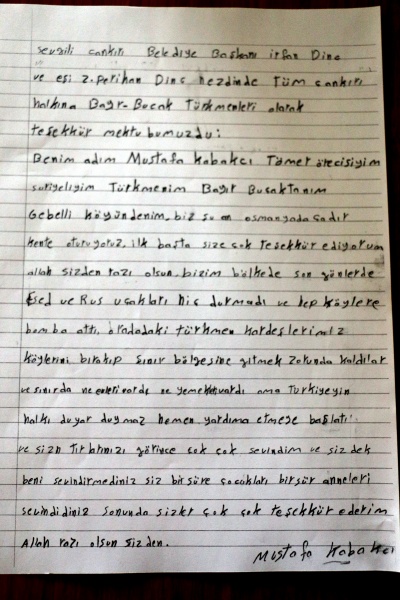 sevgili çankırı Belediye Başkanı irfan Dinç
ve eşi z.perihan Dinç nezdinde Tüm çankırı
halkına Bayır-Bucak Türkmenleri olarak
teşekkür mektubumuzdu:
Benim adım Mustafa Kabakcı Tömer örecisiyim
suriyeliyim Türkmenim Bayır Bucaktanım
Gebelli köyündenim, biz şu an osmanyada çadır
kente oturuyoruz, ilk başta size çok teşekkür ediyorum
allah sizden razı olsun, bizim bölkede son günlerde
Esed ve Rus uçakları hiç durmadı ve hep köylere
bomba attı, oradadaki türkmen kardeşlerimiz
köylerini bırakıp sınır bölgesine gitmek zorunda kaldılar
ve sınırda ne vardı ne yemek vardı ama Türkiyeyin
halkı duyar duymaz hemen yardıma etmeye başlatı
ve sizn tırlarınızı görünce çok çok sevindim ve siz dek
beni sevindirmediniz siz birsüre çocukları birsür anneleri
sevindidiniz sonunda sizler çok çok teşekkür ederim
Allah razı olsun sizden.
Mustafa Kabakcı